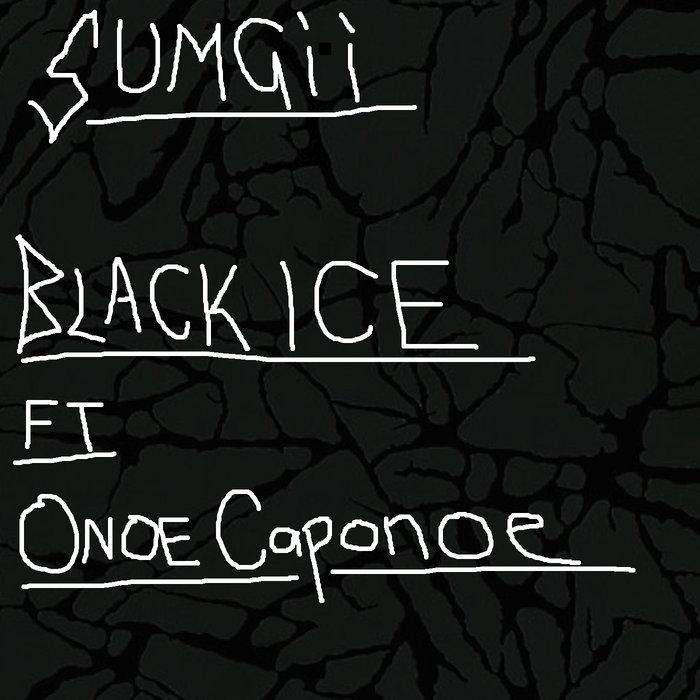 SUMGii
BLACK ICE
FT
ONOE Caponoe